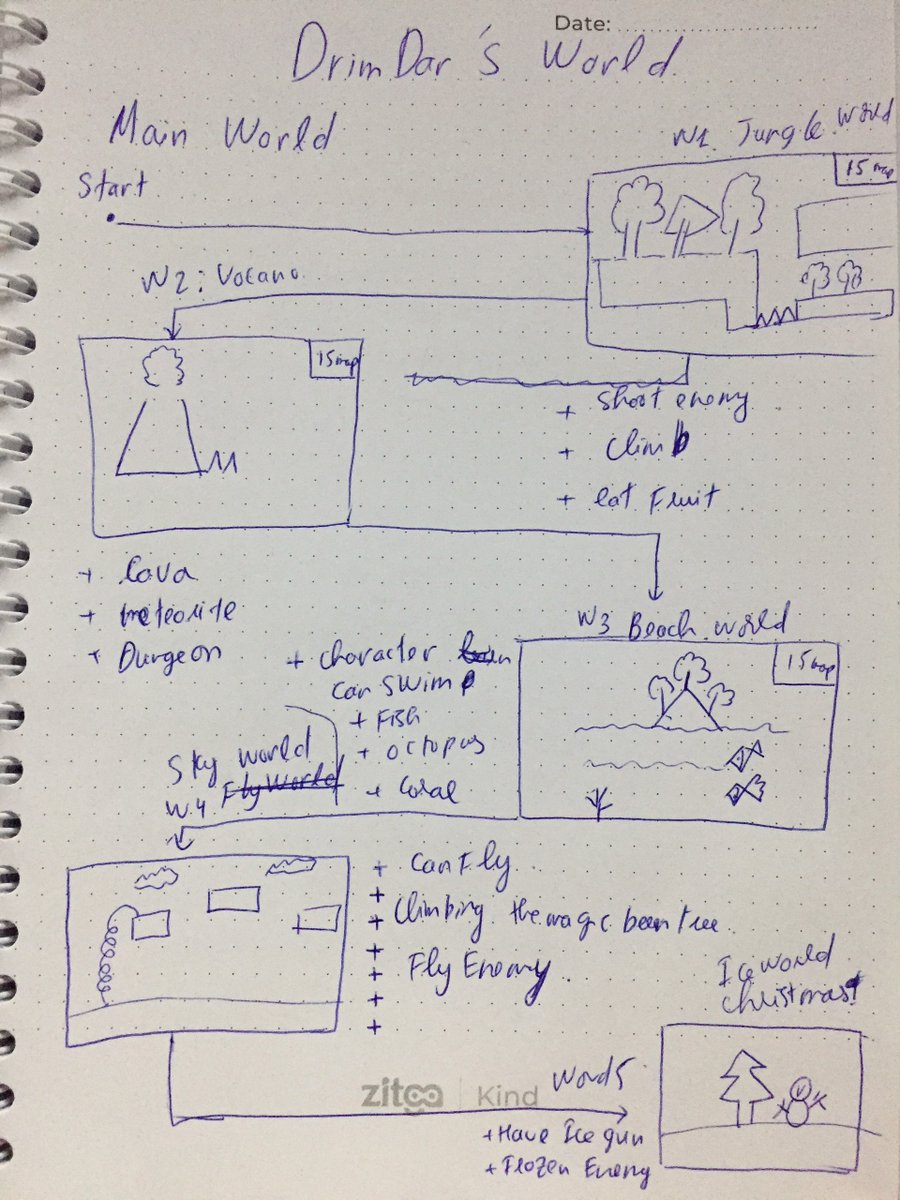 Date:
DrimDar's World
Main World
W1. Jungle World
15 map
Start
W2: Vocano
15 map
+ Shoot enemy
+ Climb
+ eat Fruit
+ lava
+ meteorite
+ Dungeon
W3 Beach world
15 map
+ character
can swim
+ Fish
+ octopus
+ Coral
Sky world
W.4 FlyWorld
+ Can Fly
+ Climbing the magic been tree
+ Fly Enemy
Ice world
christmast
Word 5
zitoo Kind
+ Have Ice gun
+ Frozen Enemy